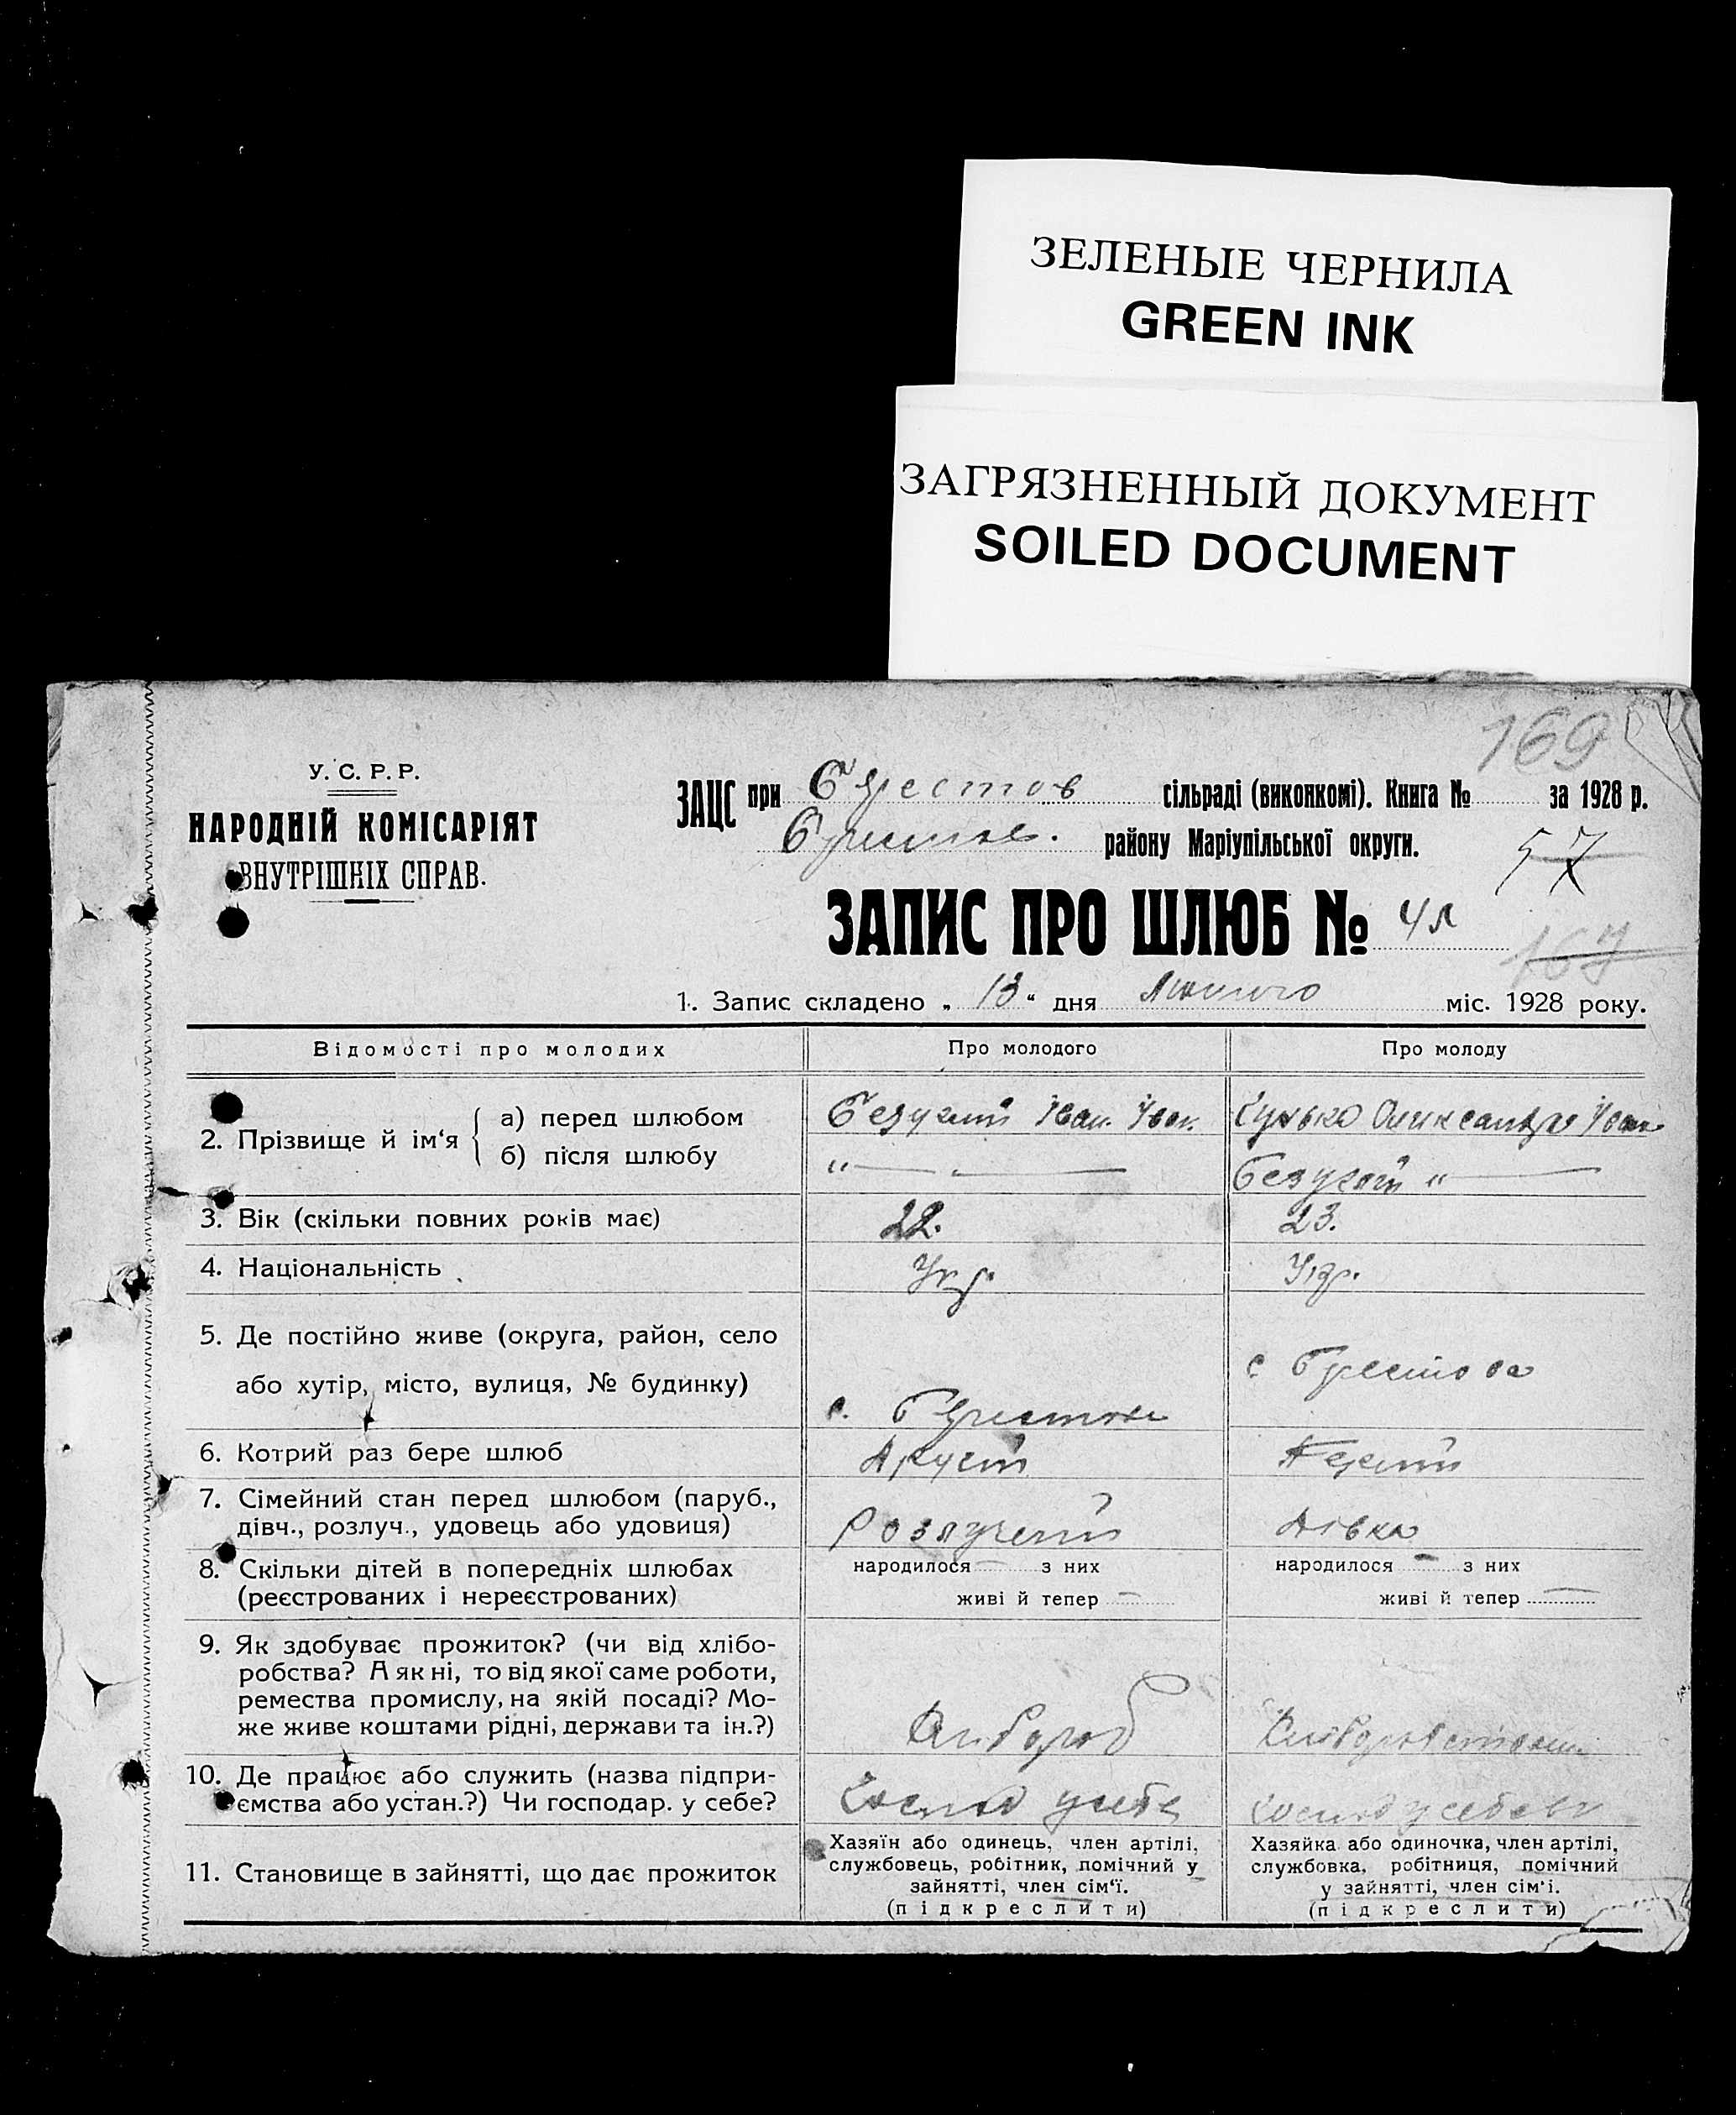 ЗЕЛЕНЫЕ ЧЕРНИЛА
GREEN INK
ЗАГРЯЗНЕННЫЙ ДОКУМЕНТ
SOILED DOCUMENT
169
У.С.Р.Р.
НАРОДНІЙ КОМІСАРІЯТ
ВНУТРІШНІХ СПРАВ.
ЗАЦС при сільраді (виконкомі). Книга № за 1928 р.
району Маріупільської округи.
57
ЗАПИС ПРО ШЛЮБ №
167
1. Запис складено „ 13 “ дня Лютого міс. 1928 року.
Відомості про молодих Про молодого Про молоду
2. Прізвище й ім‘я { а) перед шлюбом Іван Іван.
б) після шлюбу
3. Вік (скільки повних років має) 22. 23.
4. Національність Укр. Укр.
5. Де постійно живе (округа, район, село
або хутір, місто, вулиця, № будинку) с. с
6. Котрий раз бере шлюб
7. Сімейний стан перед шлюбом (паруб.,
дівч., розлуч., удовець або удовиця) Дівка
8. Скільки дітей в попередніх шлюбах народилося — з них народилося — з них
(реєстрованих і нереєстрованих) живі й тепер — живі й тепер —
9. Як здобуває прожиток? (чи від хлібо-
робства? А як ні, то від якої саме роботи,
ремества промислу, на якій посаді? Мо-
же живе коштами рідні, держави та ін.?)
10. Де працює або служить (назва підпри-
ємства або устан.?) Чи господар. у себе?
11. Становище в зайнятті, що дає прожиток
Хазяїн або одинець, член артілі,
службовець, робітник, помічний у
зайнятті, член сім‘ї.
(підкреслити)
Хазяйка або одиночка, член артілі,
службовка, робітниця, помічний
у зайнятті, член сім‘і.
(підкреслити)